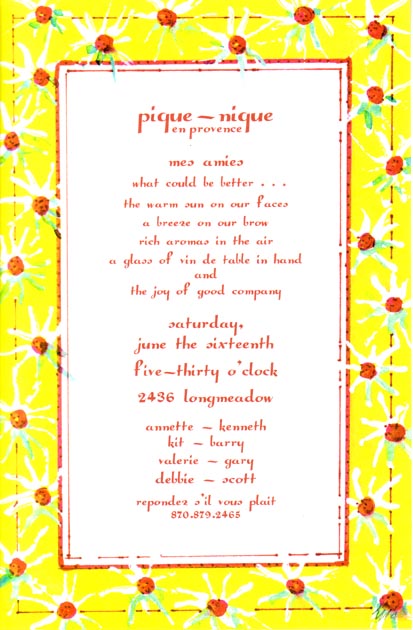 pique – nique
en provence
mes amies
what could be better . . .
the warm sun on our faces
a breeze on our brow
rich aromas in the air
a glass of vin de table in hand
and
the joy of good company
saturday,
june the sixteenth
five–thirty o'clock
2436 longmeadow
annette – kenneth
kit – barry
valerie – gary
debbie – scott
repondez s'il vous plait
870.879.2465